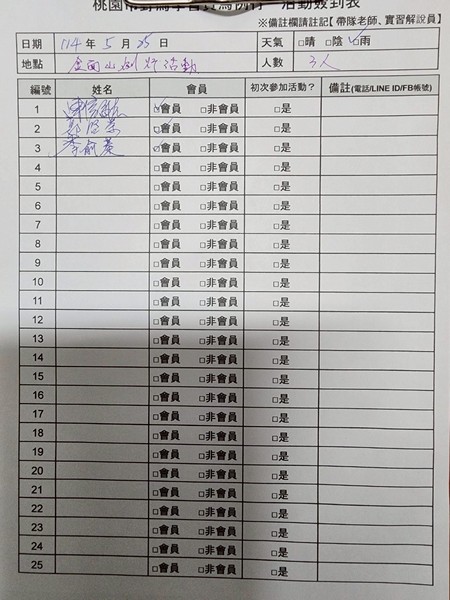 桃園市野鳥學會賞鳥例行 活動簽到表
※備註欄請註記【帶隊老師、實習解說員】
日期 114 年 5 月 25 日 天氣 □晴 □陰 ☑雨
地點 活動 人數 3人
編號 姓名 會員 初次參加活動? 備註(電話/LINE ID/FB帳號)
1 ☑會員 □非會員 □是
2 ☑會員 □非會員 □是
3 ☑會員 □非會員 □是
4 □會員 □非會員 □是
5 □會員 □非會員 □是
6 □會員 □非會員 □是
7 □會員 □非會員 □是
8 □會員 □非會員 □是
9 □會員 □非會員 □是
10 □會員 □非會員 □是
11 □會員 □非會員 □是
12 □會員 □非會員 □是
13 □會員 □非會員 □是
14 □會員 □非會員 □是
15 □會員 □非會員 □是
16 □會員 □非會員 □是
17 □會員 □非會員 □是
18 □會員 □非會員 □是
19 □會員 □非會員 □是
20 □會員 □非會員 □是
21 □會員 □非會員 □是
22 □會員 □非會員 □是
23 □會員 □非會員 □是
24 □會員 □非會員 □是
25 □會員 □非會員 □是